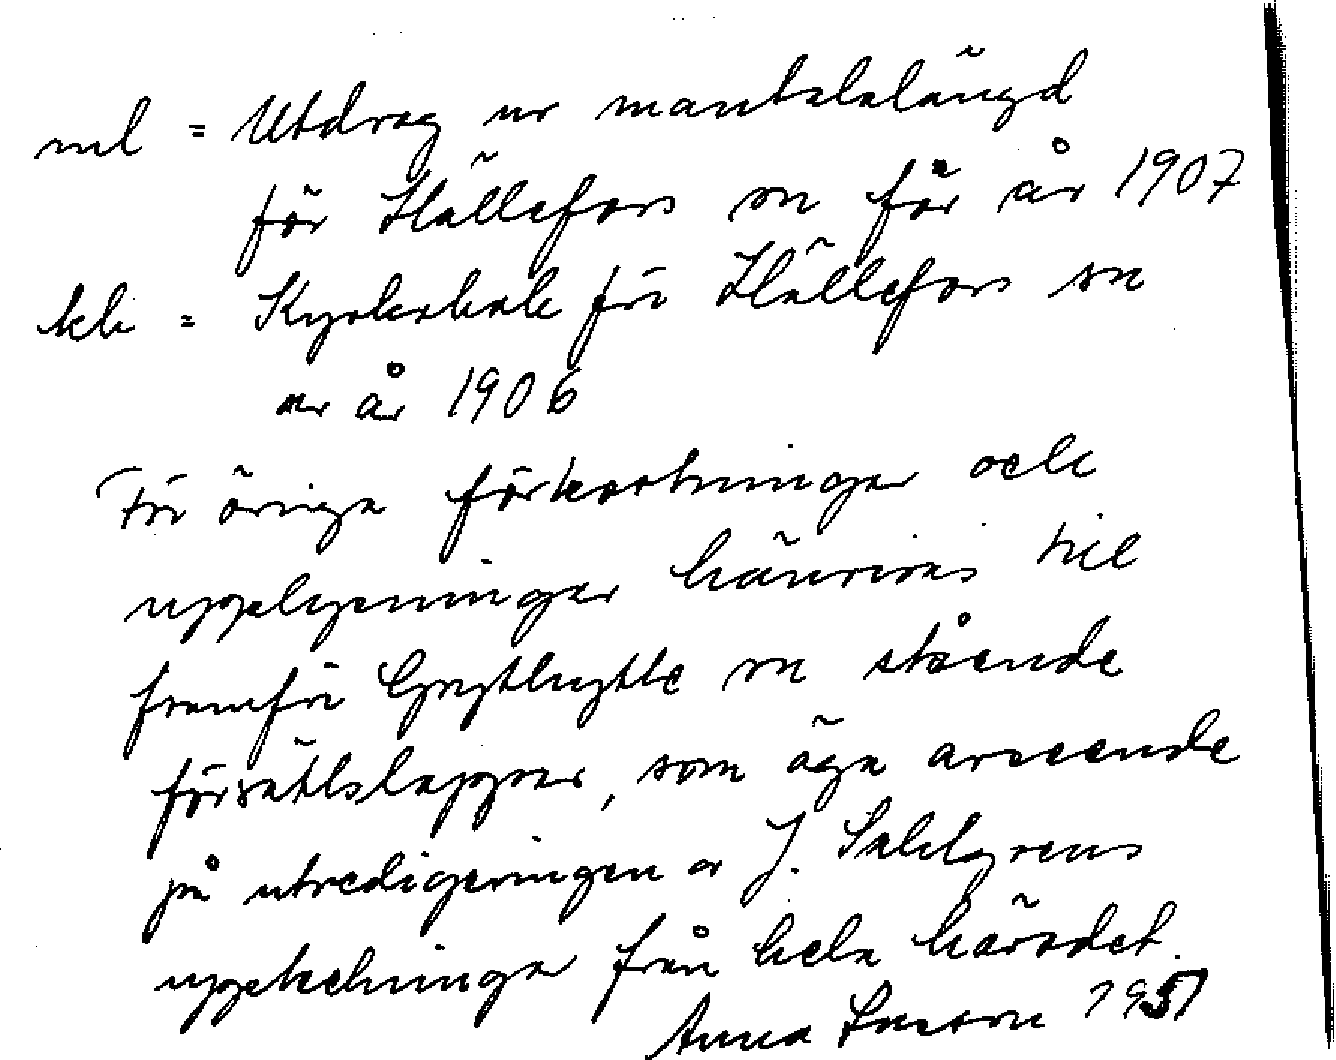 ml = Utdrag ur mantalslängd
för Hällefors sn för år 1907
kb = Kyrkobok för Hällefors sn
ur år 1906
För övriga förkortningar och
upplysningar hänvisas till
framför Grythytte sn stående
försättslappar, som äga avseende
på utredigeringen av J. Sahlgrens
uppteckningar från hela häradet.
Anna 1951